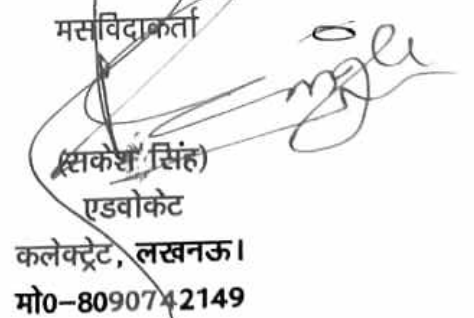 मसविदाकर्ता
(सकेश सिंह)
एडवोकेट
कलेक्ट्रेट, लखनऊ।
मो0-8090742149